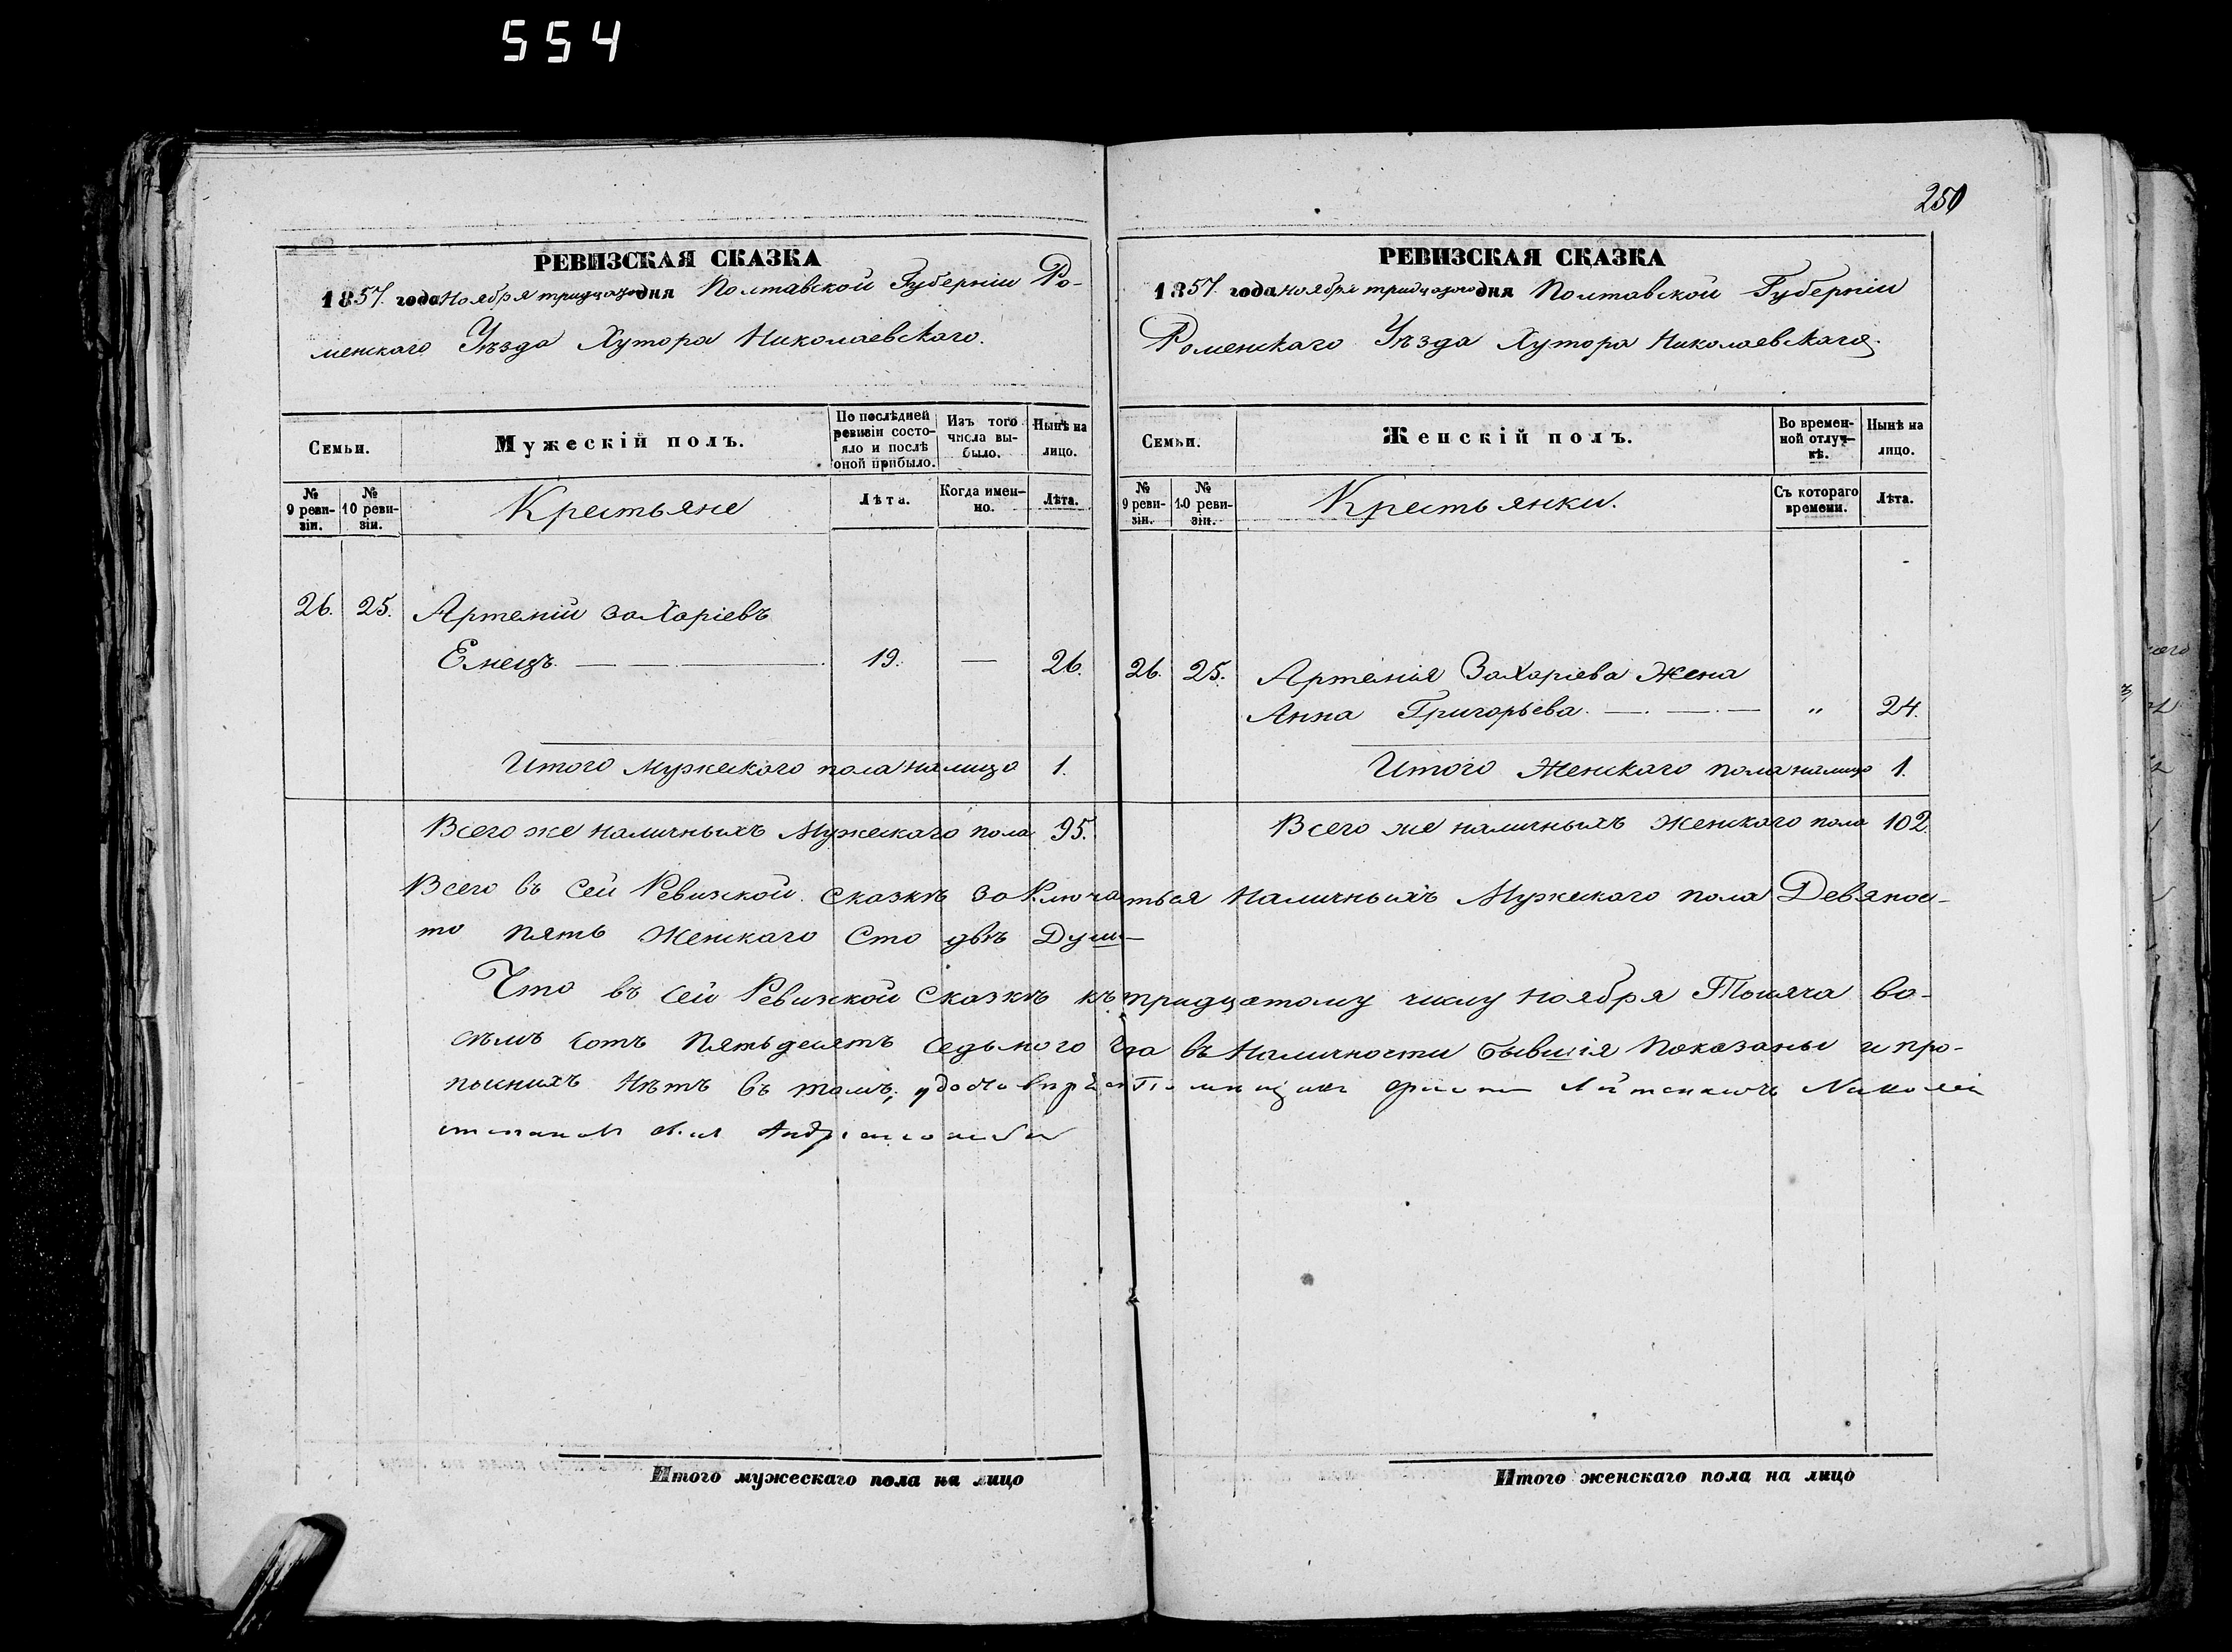 554
250
РЕВИЗСКАЯ СКАЗКА
1857. года Ноября тридцатого дня Полтавской Губерніи Ро-
менскаго Уѣзда Хутора Николаевскаго.
Семьи.
Мужескій полъ.
По послѣдней ревизіи состояло и послѣ оной прибыло.
Изъ того числа выбыло.
Нынѣ на лицо.
№ 9 ревизіи.
№ 10 ревизіи.
Крестьяне
Лѣта.
Когда именно.
Лѣта.
26. 25. Артемій Захаріевъ
Емецъ. — — — 19. — 26.
Итого мужескаго пола налицо 1.
Всего же наличныхъ Мужескаго пола 95.
РЕВИЗСКАЯ СКАЗКА
1857. года Ноября тридцатого дня Полтавской Губерніи
Роменскаго Уѣзда Хутора Николаевскаго.
Семьи.
Женскій полъ.
Во временной отлучкѣ.
Нынѣ на лицо.
№ 9 ревизіи.
№ 10 ревизіи.
Крестьянки.
Съ котораго времени.
Лѣта.
26. 25. Артемія Захаріева Жена
Анна Григорьева. — — — „ 24.
Итого Женскаго пола налицо 1.
Всего же наличныхъ Женскаго пола 102.
Всего въ Сей Ревизской Сказкѣ Заключаться Наличныхъ Мужскаго пола Девянос-
то пять Женскаго Сто двѣ Души—
Что въ сей Ревизской Сказкѣ къ тридцатому числу Ноября Тысяча во-
съмъ сотъ Пятьдесятъ Седьмого года въ Наличности бывшія Показаны и про-
писныхъ Нѣтъ въ томъ,
Николай
Итого мужескаго пола на лицо
Итого женскаго пола на лицо